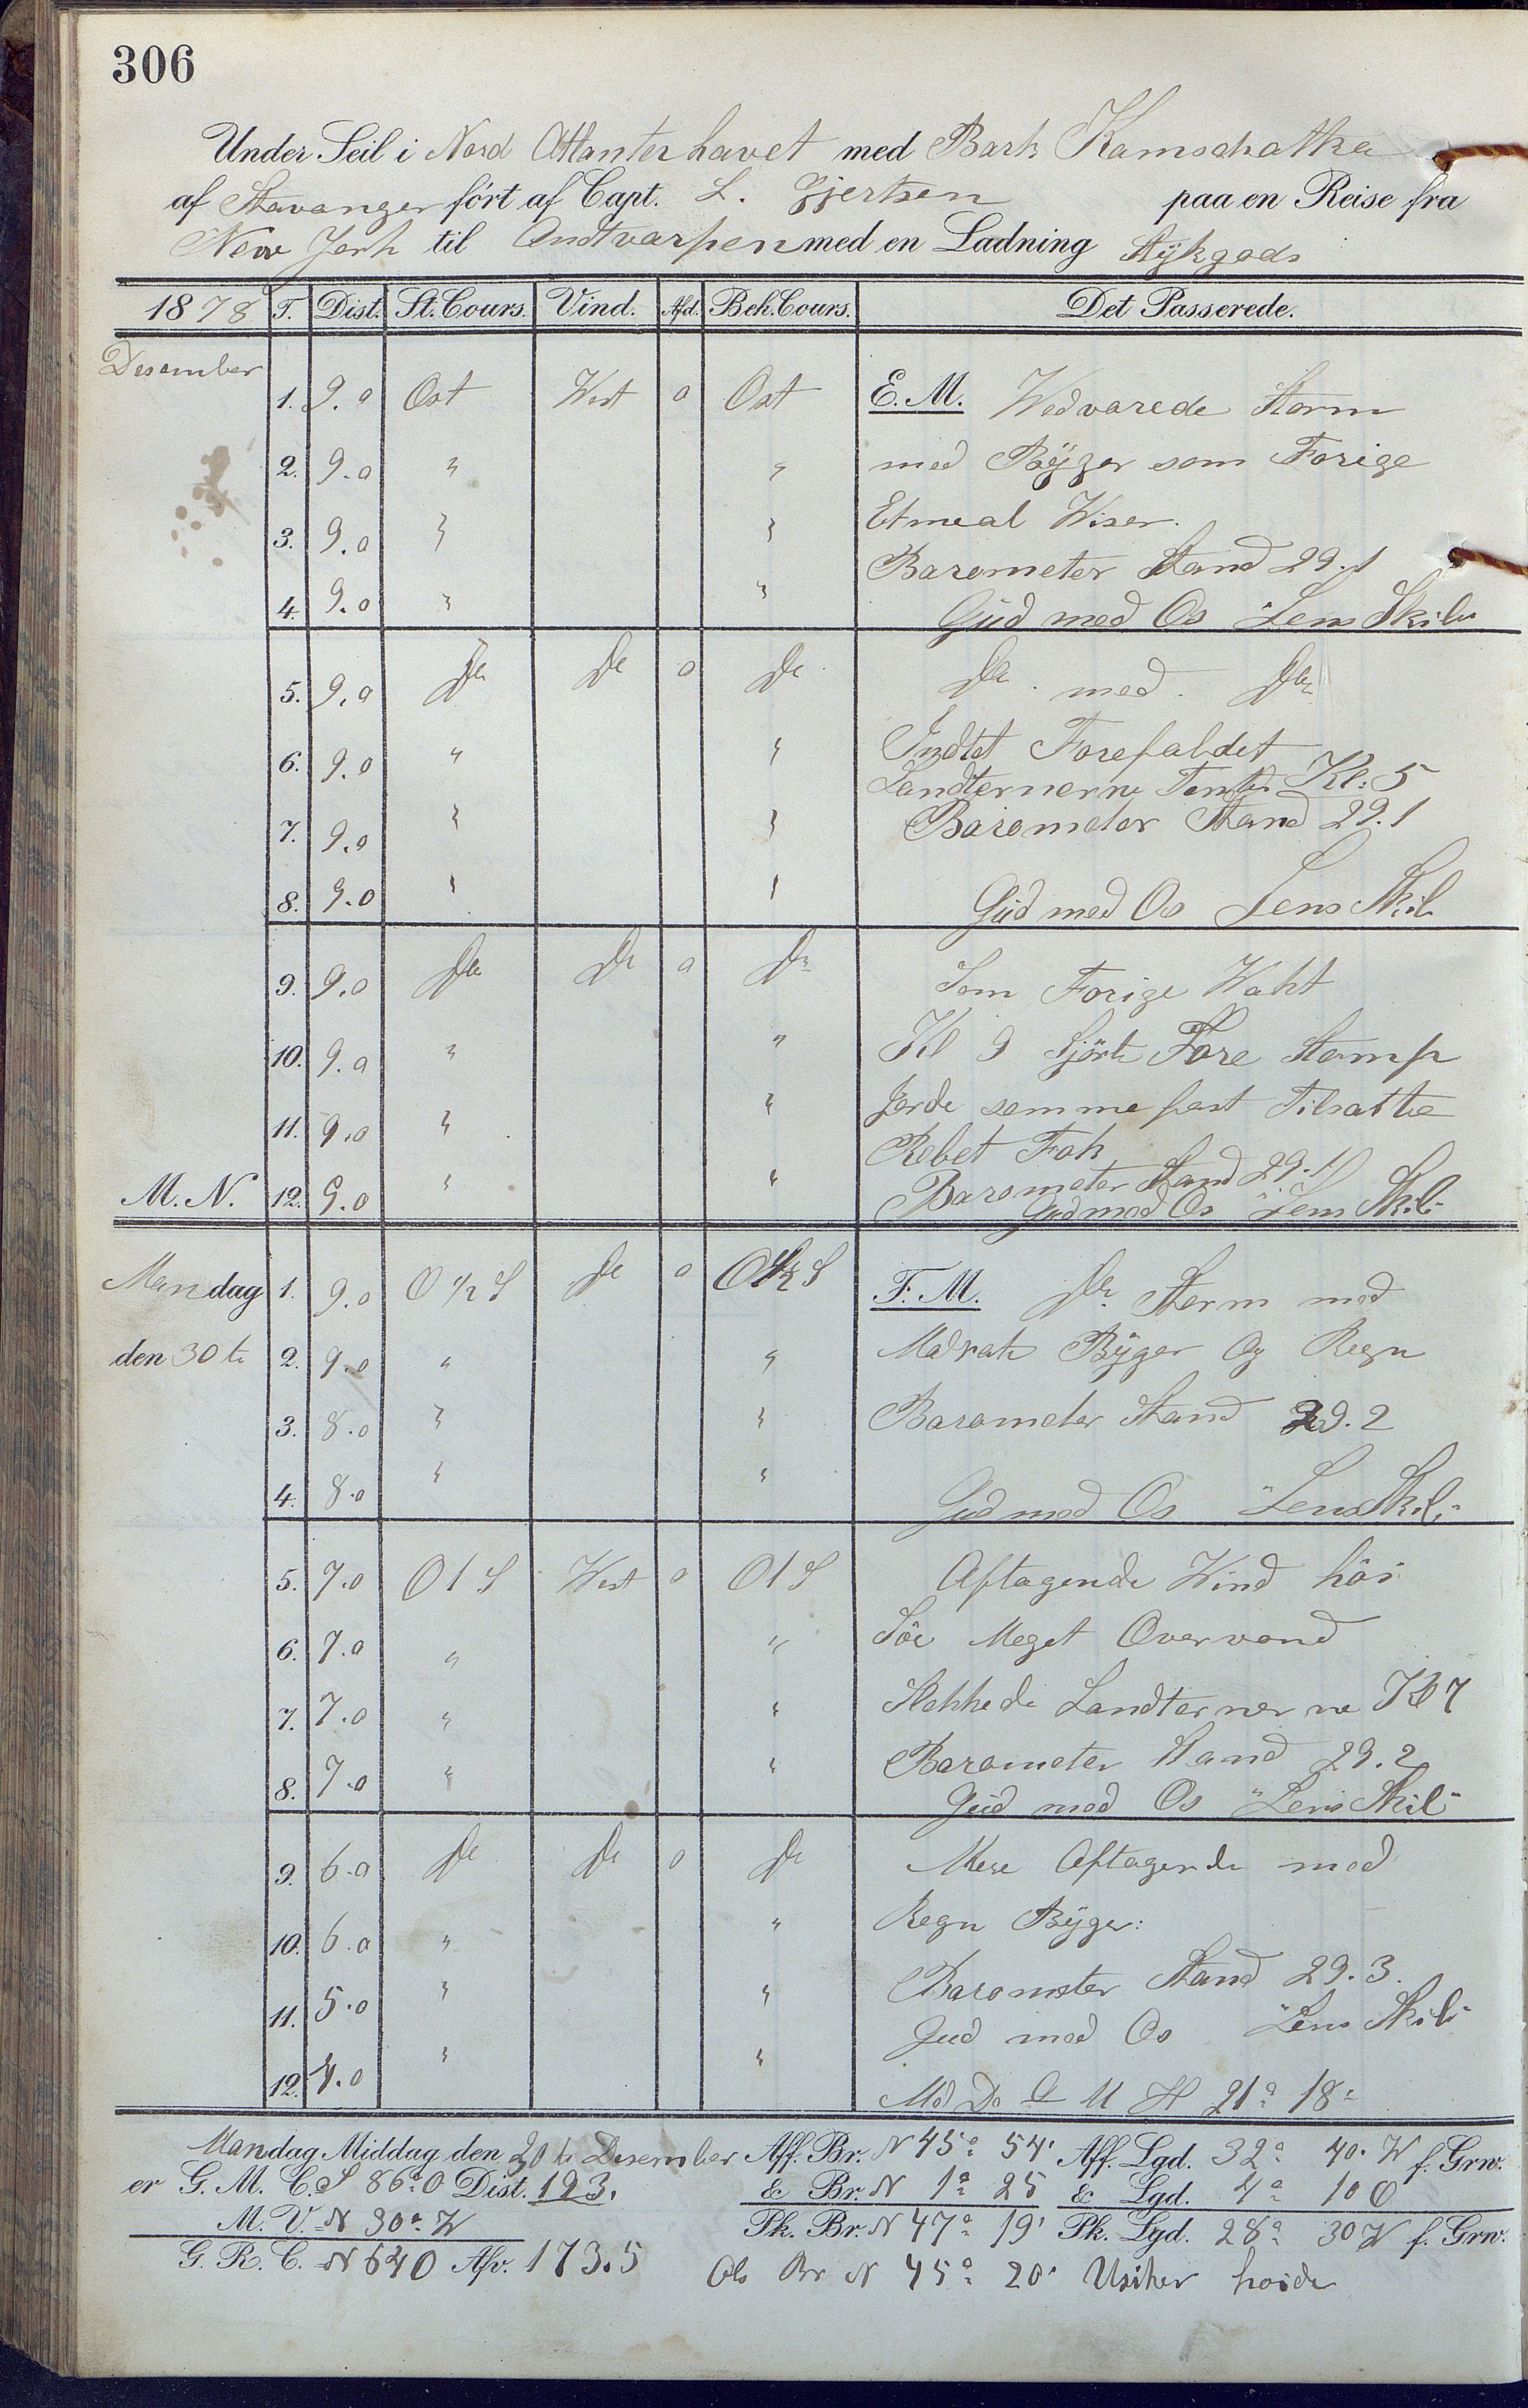 306
Under Seil i Nord Atlanterhavet med Bark Kamschatka
af Stavanger fört af Capt. L. Gjertsen paa en Reise fra
New Jork til Andtvarpen med en Ladning Stÿkgods
1878 T. Dist. St. Cours. Vind. Afd. Beh. Cours. Det Passerede.
Desember
1. 9.0 Ost West 0 Ost E. M. Wedvarede Storm
2. 9.0 " " med Bÿger som Forige
3. 9.0 " " Etmeal Wiser.
Barometer Stand 29.1
4. 9.0 " " Gud med Os Lens Skib
5. 9.0 Do Do 0 Do Do med Do
6. 9.0 " " Indtet Forefaldet
Landternerne Tendte Kl: 5
7. 9.0 " " Barometer Stand 29.1
8. 9.0 " " Gud med Os Lens Skib
9. 9.0 Do Do 0 Do Som Forige Waht
10. 9.0 " " Kl 9 Fore Stomp
11. 9.0 " " somme fast Tilsatte
Rebet Fok
Barometer Stand 29.1
M. N. 12. 9.0 " " Gud med Os Lens Skib
Mandag 1. 9.0 O 1/2 S Do 0 O 1/2 S F. M. Do Storm med
den 30te 2. 9.0 " " Madrate Bÿger Og Regn
3. 8.0 " " Barometer Stand 29.2
4. 8.0 " " Gud med Os Lens Skib
5. 7.0 O 1 S West 0 O 1 S Aftagende Wind höi
6. 7.0 " " Söe Meget Overvand
7. 7.0 " " Slukkede Landternerne Kl 7
8. 7.0 " " Barometer Stand 29.2
Gud med Os Lens Skib
9. 6.0 Do Do 0 Do Mere Aftagende med
10. 6.0 " " Regn Bÿger:
Barometer Stand 29.3.
11. 5.0 " " Gud med Os Lens Skib
12. 4.0 " " 21° 18'
Mandag Middag den 30te Desember Aff. Br. N 45° 54' Aff. Lgd. 32° 40' W f. Grw.
er G. M. C. S 86° O Dist. 123. & Br. N 1° 25 & Lgd. 4° 10 O
M. V. = N 30° W Pk. Br. N 47° 19' Pk. Lgd. 28° 30 W f. Grw.
G. R. C. N 64 O Afv. 173.5 Ob Br N 45° 20' Usiker hoide